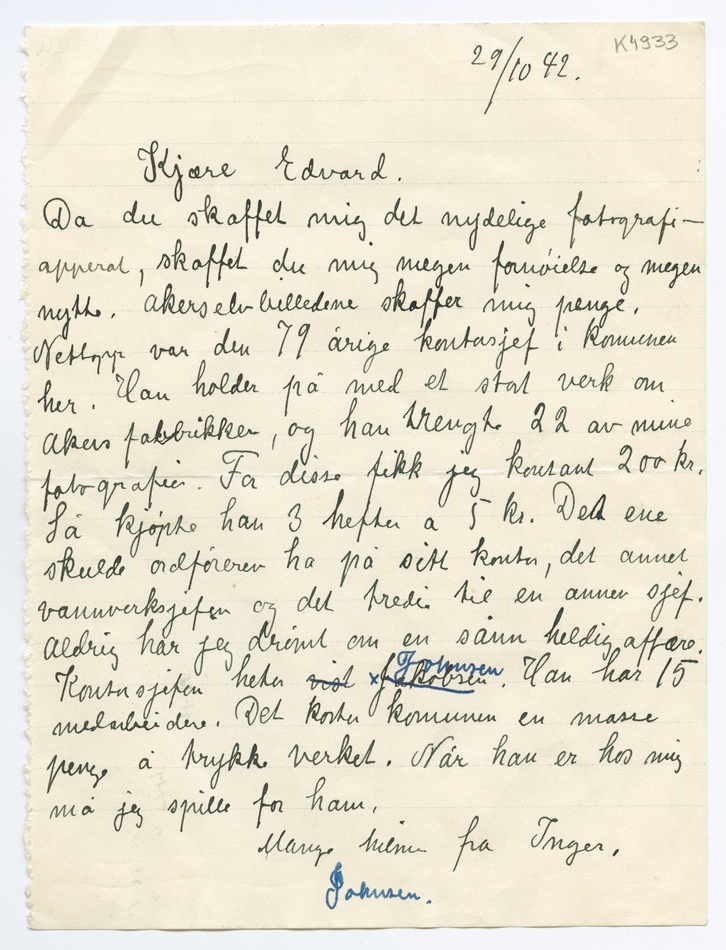 29/10 42.
K4933
Kjære Edvard.
Da du skaffet mig det nydelige fotografi-
apperat, skaffet du mig megen fornøielse og megen
nytte. Akerselvbilledene skaffer mig penge.
Nettopp var den 79 årige kontorsjef i komunen
her. Han holder på med et stort verk om
Akers fabrikker, og han trengte 22 av mine
fotografier. For disse fikk jeg kontant 200 kr.
Så kjøpte han 3 hefter a 5 kr. Det ene
skulde ordføreren ha på sitt kontor, det annet
vannverksjefen og det tredie til en annen sjef.
Aldrig har jeg drømt om en sånn heldig affære.
Kontorsjefen heter vist x Jakobsen. Johnsen Han har 15
medarbeidere. Det koster komunen en masse
penge å trykke verket. Når han er hos mig
må jeg spille for ham.
Mange hilsner fra Inger.
Johnsen.